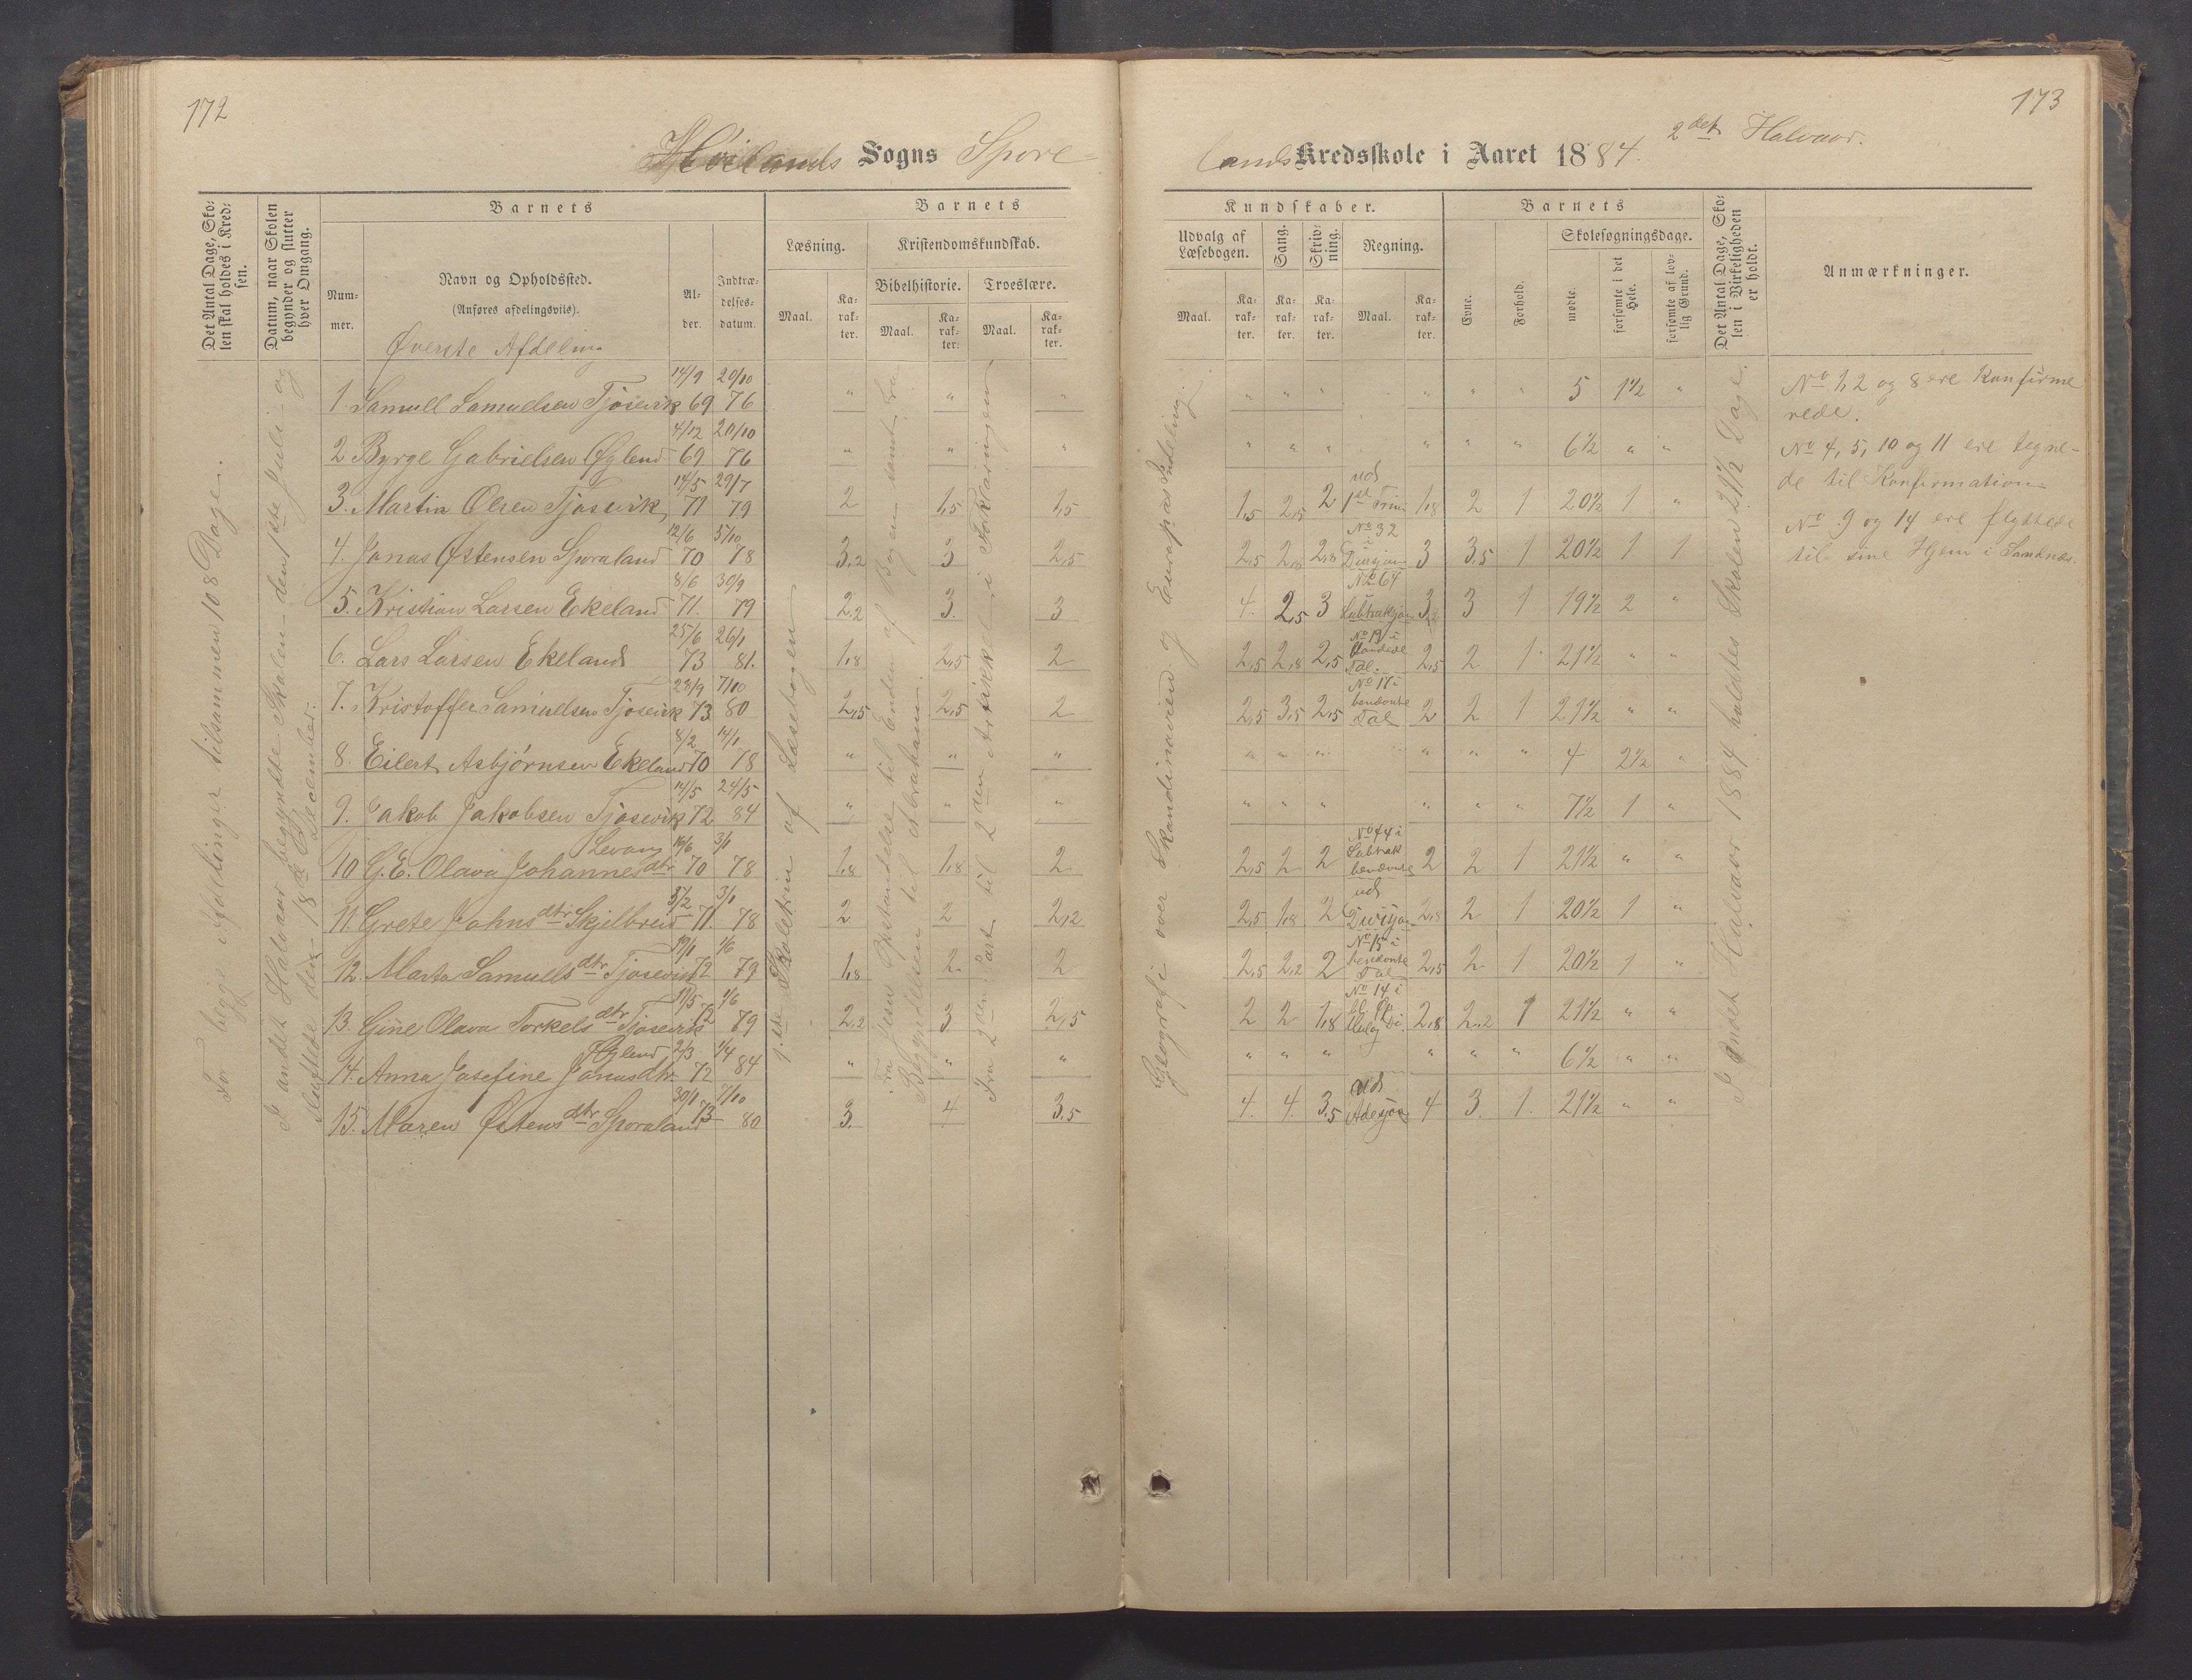 172
173
Høilands Sogns Spore-
lands Kredsskole i Aaret 1884. 2det Halvaar.
Det Antal Dage, Sko-
len skal holdes i Kred-
sen.
Datum, naar Skolen
begynder og slutter
hver Omgang.
Barnets
Num-
mer.
Navn og Opholdssted.
(Anføres afdelingsviis).
Al-
der.
Indtræ-
delses-
datum.
Barnets
Læsning.
Maal.
Ka-
rak-
ter.
Kristendomskundskab.
Bibelhistorie.
Maal.
Ka-
rak-
ter.
Troeslære.
Maal.
Ka-
rak-
ter.
Kundskaber.
Udvalg af
Læsebogen.
Maal.
Ka-
rak-
ter.
Sang.
Ka-
rak-
ter.
Skriv-
ning.
Ka-
rak-
ter.
Regning.
Maal.
Ka-
rak-
ter.
Barnets
Evne.
Forhold.
Skolesøgningsdage.
mødte.
forsømte i det
Hele.
forsømte af lov-
lig Grund.
Det Antal Dage, Sko-
len i Virkeligheden
er holdt.
Anmærkninger.
Øverste Afdeling
For begge Afdelinger tilsammen 108 Dage.
I andet Halvaar begyndte Skolen den 1ste Juli og
sluttede den 18de December.
1ste Skoletrin af Læsebogen
Fra Jesu Opstandelse til Enden af Bogen samt fra
Begyndelsen til Abraham.
Fra 2den Part til 2den Artikkel i Forklaringen
Geografi over Skandinavien og Europas Inddeling.
I andet Halvaar 1884 holdtes Skolen 21½ Dage.
1. Samuel Samuelsen Tjøsevik 14/9 69 20/10 76 " " " " " " " " " 5 1½ "
2 Byrge Gabrielsen Øglend 4/12 69 20/10 76 " " " " " " " " " 6½ " "
3. Martin Olsen Tjøsevik, 14/5 71 29/7 79 2 1,5 1,5 1,5 2,5 2 ud 1ste Trin 1,8 2 1 20½ 1 "
4. Jonas Østensen Sporaland 12/6 70 5/10 78 3,2 3 2,5 2,5 2,8 2,8 No 32 i Divisjon 3 3,5 1 20½ 1 1
5. Kristian Larsen Ekeland 8/6 71. 30/9 79 2,2 3. 3 4. 2,5 3 No 64 Subtraksjon 3,2 3 1 19½ 2 "
6. Lars Larsen Ekeland 25/6 73 26/1 81. 1,8 2,5 2 2,5 2,8 2,5 No 19 i Tal. 2,5 2 1 21½ " "
7. Kristoffer Samuelsen Tjøsevik 23/9 73 7/10 80 2,5 2,5 2 2,5 3,5 2,5 No 11 i benævnte Tal 2 2 1 21½ " "
8. Eilert Asbjørnsen Ekeland 8/2 70 14/1 78 " " " " " " " " 4 2½ "
9. Jakob Jakobsen Tjøsevik 14/5 72 24/5 84 " " " " " " " " " 7½ 1 "
10 G. E. Olava Johannesdtr 70 3/1 78 1,8 1,8 2 2,5 2 2 No 44 i Subtrak benævnte 2 2 1 21½ " "
11. Grete Johnsdtr Skjelbreid 5/2 71. 3/1 78 2 2 2,2 2,5 1,8 2 ud Divisjon 2,8 2 1 20½ 1 "
12. Marta Samuelsdtr Tjøsevik 19/1 72 1/6 79 1,8 2 2 2,5 2,2 2 No 15 i benævnte Tal 2,5 2 1 20½ 1 "
13. Gine Olava Torkelsdtr Tjøsevik 11/5 72 1/6 79 2,2 3 2,5 2 2 1,8 No 14 i 2,8 2,2 1 21½ " "
14. Anna Josefine Jonasdtr Øglend 2/3 72 1/4 84 " " " " " " " " " 6½ " "
15. Maren Østensdtr Sporaland 30/1 73 7/10 80 3. 4 3,5 4. 4. 3,5 ud Adesjon 4 3. 1. 21½ " "
No 1, 2 og 8 ere Konfirme
rede.
No 4, 5, 10 og 11 ere tegne-
de til Konfirmation
No 9 og 14 ere flyttede
til sine Hjem i Sandnæs.